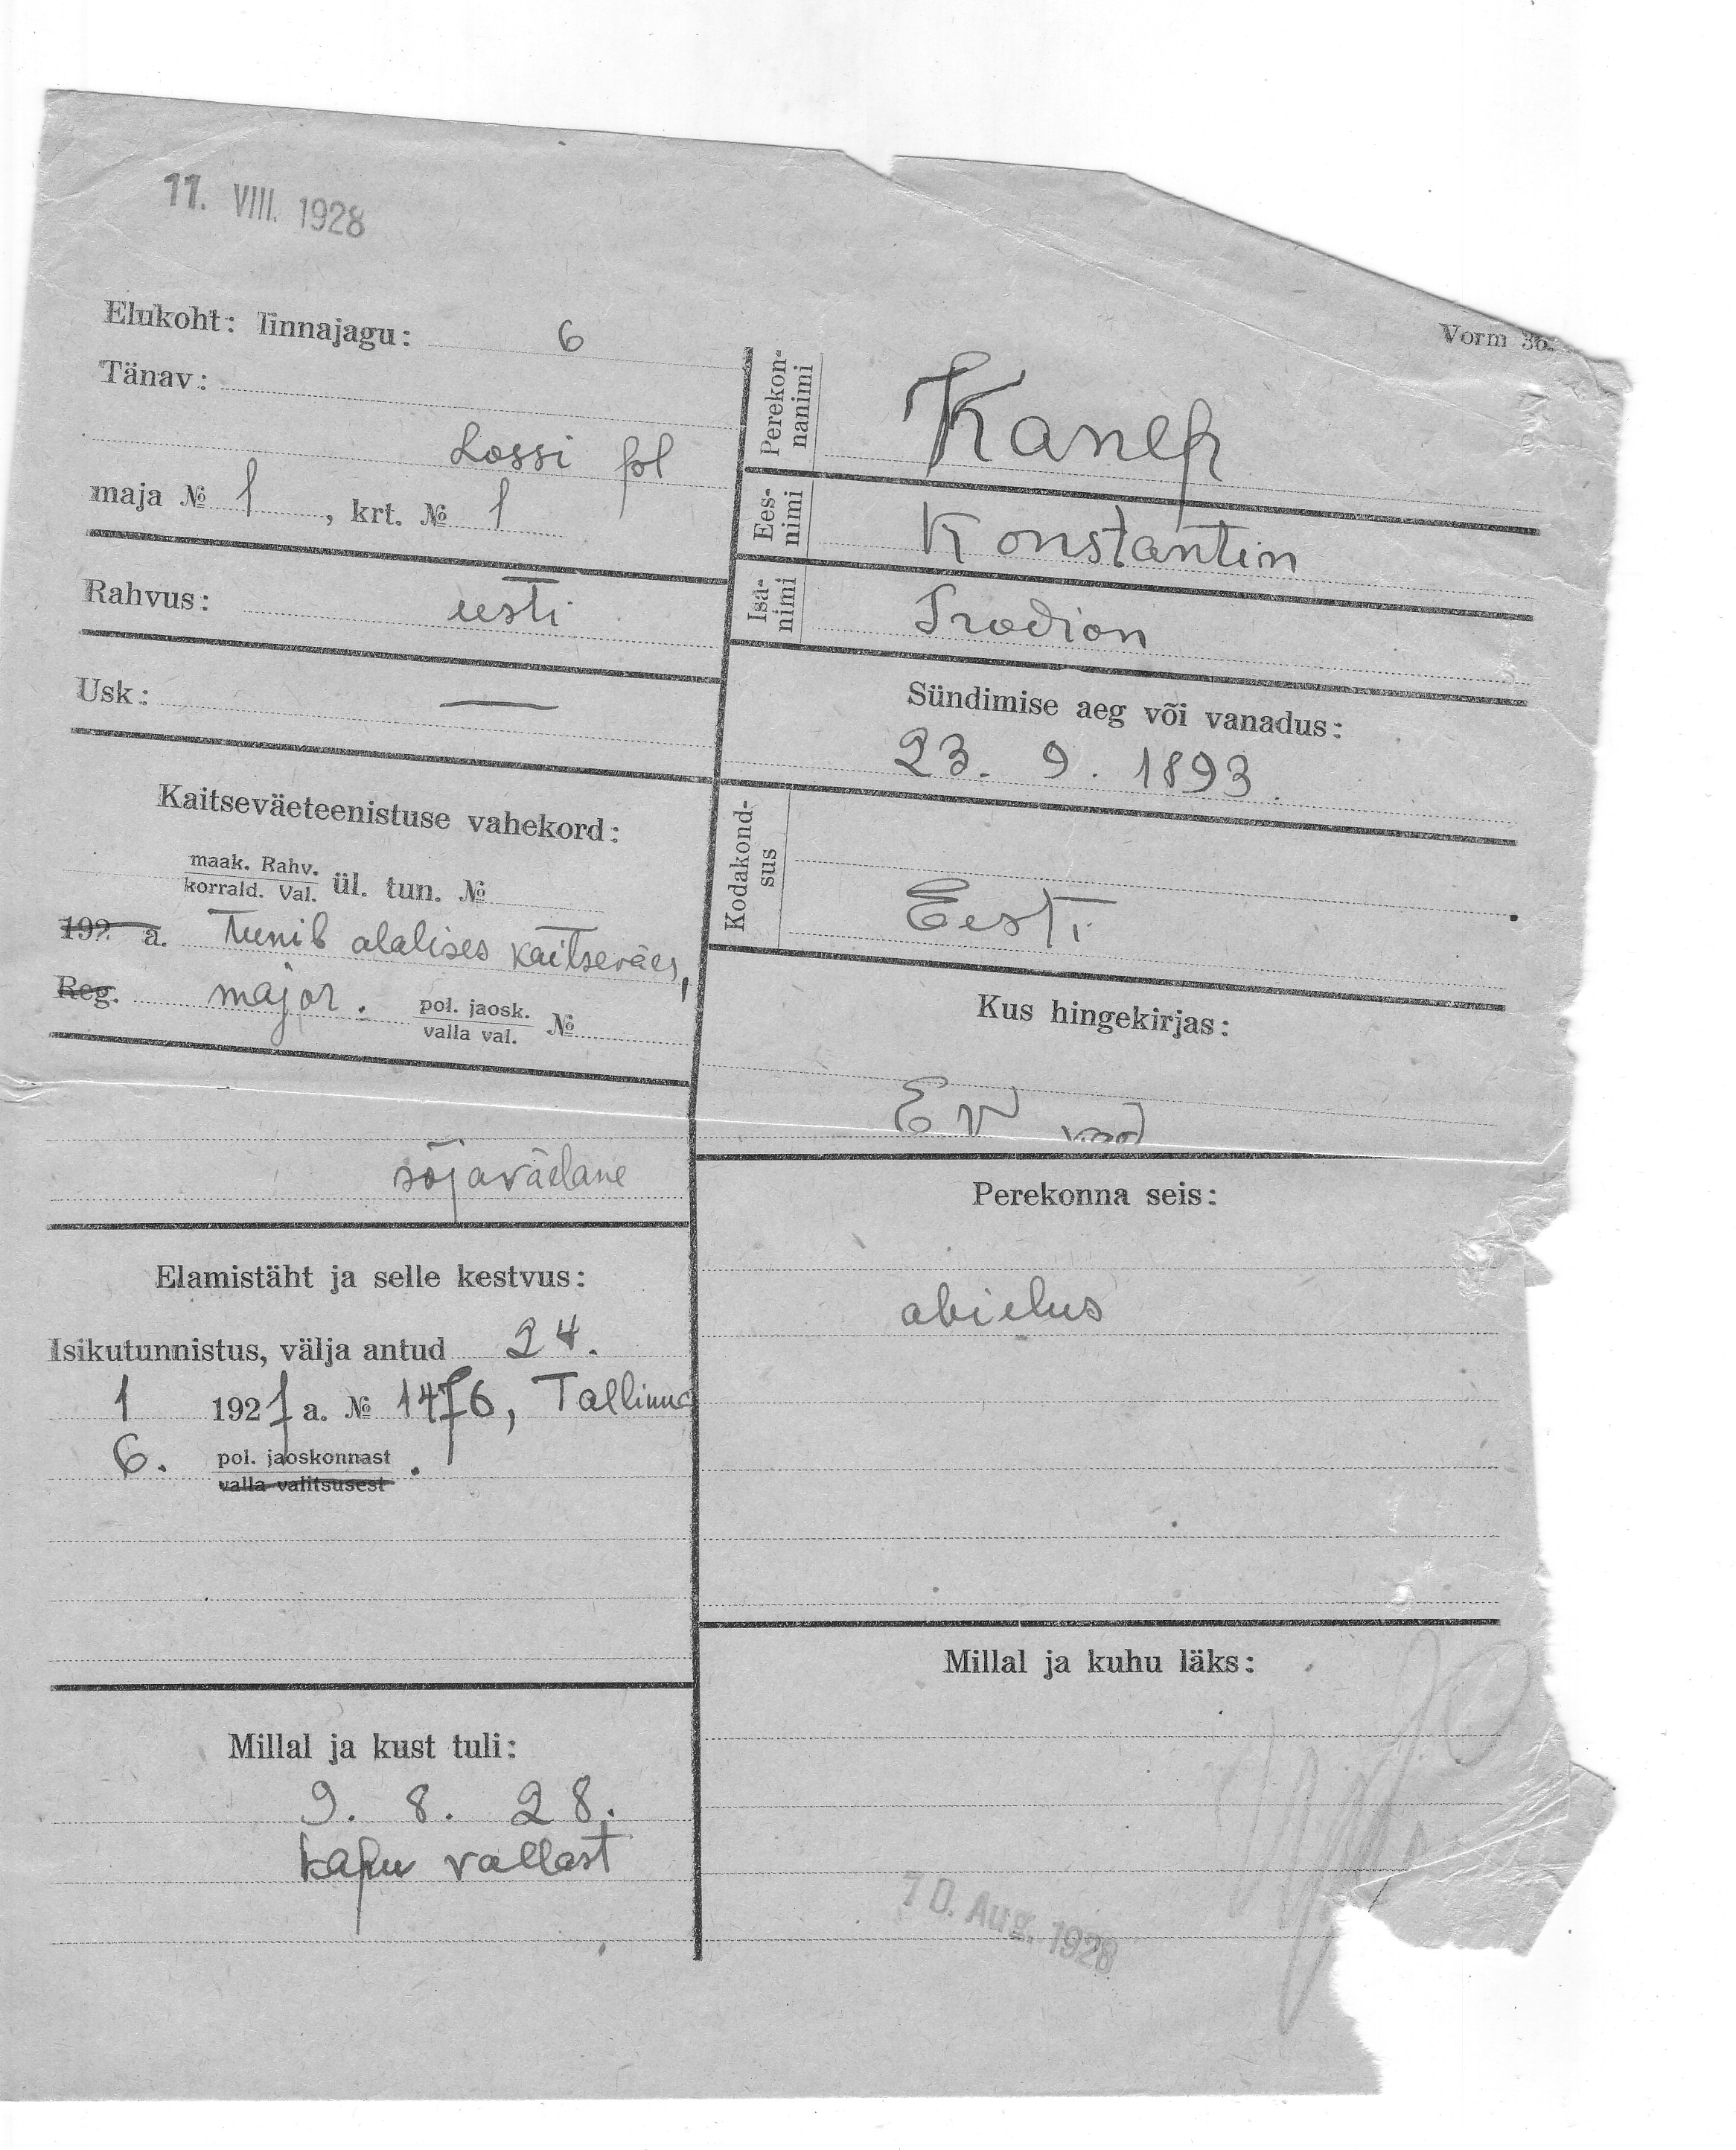 11. VIII. 1928
Elukoht: linnajagu: 6
Tänav:
Lossi pl
maja № 1, krt. № 1
Rahvus: eesti
Usk: —
Kaitseväeteenistuse vahekord:
maak. Rahv.
korrald. Val. ül. tun. №
192 a. Teenib alalises kaitseväes,
Reg. major. pol. jaosk.
valla val. №
sõjaväelane
Elamistäht ja selle kestvus:
Isikutunnistus, välja antud 24.
1 1927 a. № 1476, Tallinna
6. pol. jaoskonnast.
valla valitsusest
Millal ja kust tuli:
9. 8. 28.
Kapu vallast
Vorm 36.
Perekon-
nanimi Kanep
Ees-
nimi Konstantin
Isa-
nimi Irodion
Sündimise aeg või vanadus:
23. 9. 1893.
Kodakond-
sus Eesti
Kus hingekirjas:
Perekonna seis:
abielus
Millal ja kuhu läks:
10. Aug. 1928